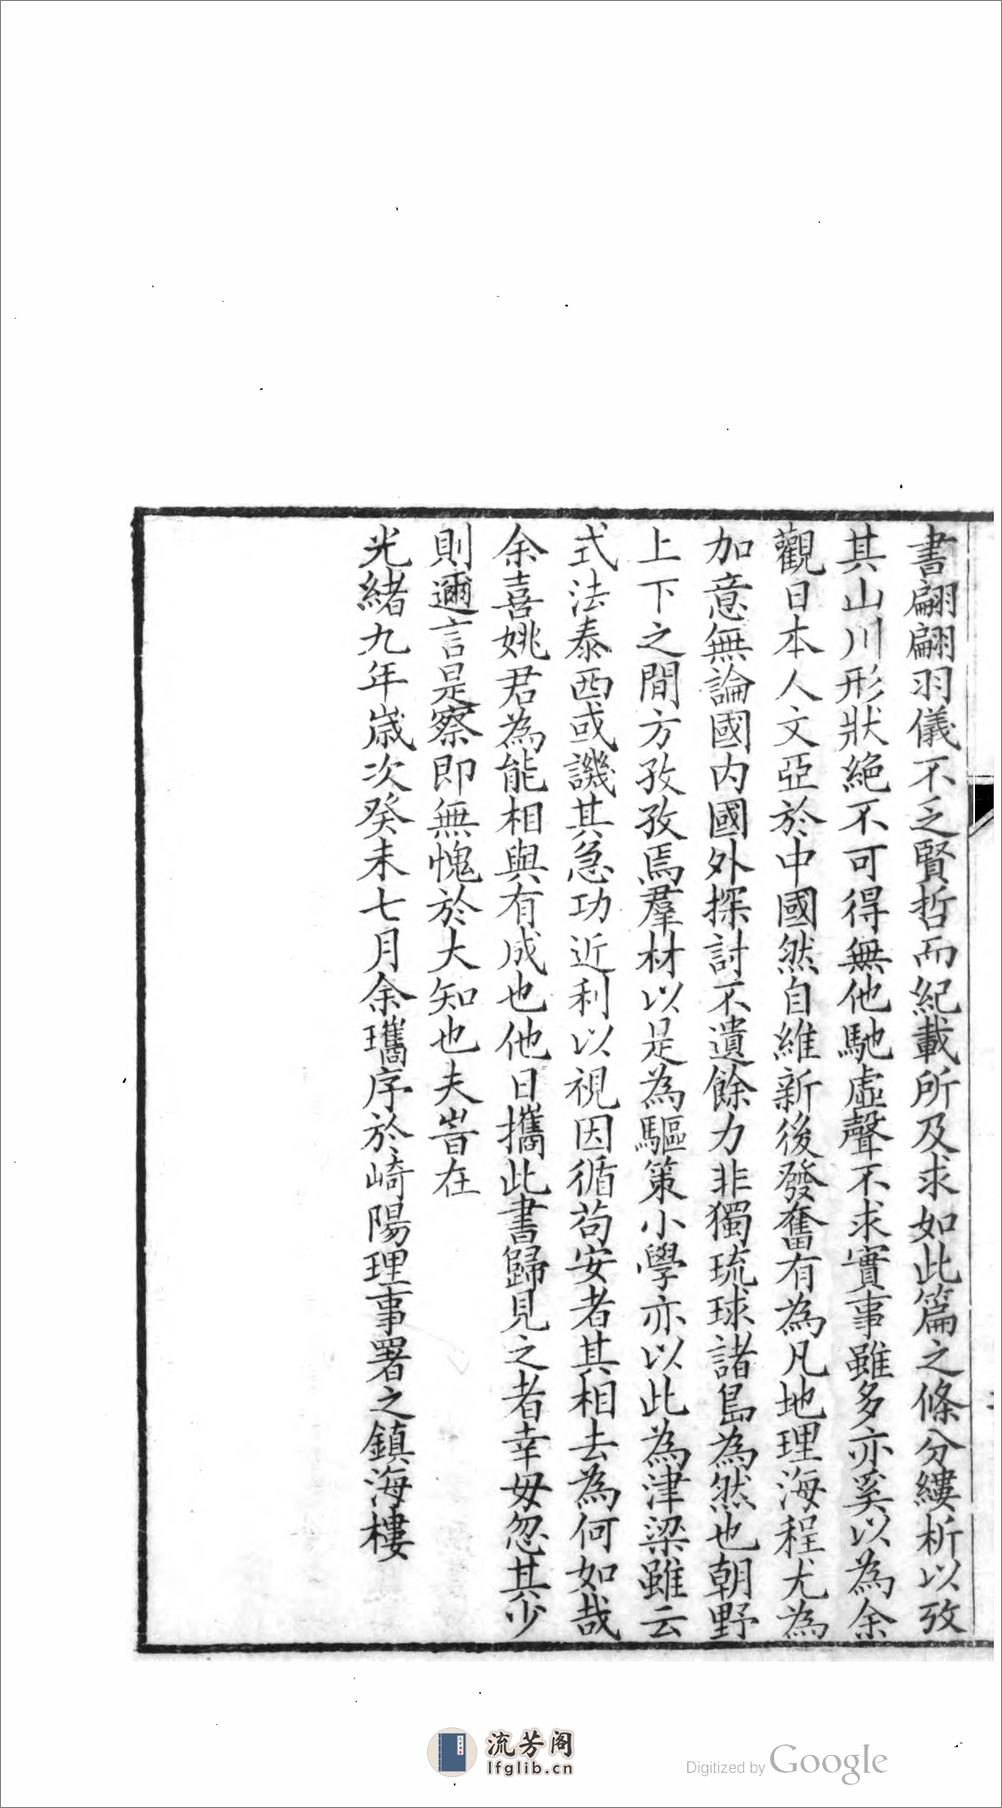 書翩翩羽儀不乏賢哲而紀載所及求如此篇之條分縷析以攷
其山川形狀絶不可得無他馳虛聲不求實事雖多亦奚以為余
觀日本人文亞於中國然自維新後發奮有為凡地理海程尤為
加意無論國内國外探討不遺餘力非獨琉球諸島為然也朝野
上下之間方孜孜焉羣材以是為驅策小學亦以此為津梁雖云
式法泰西或譏其急功近利以視因循苟安者其相去為何如哉
余喜姚君為能相與有成也他日攜此書歸見之者幸毋忽其少
則邇言是察即無愧於大知也夫旹在
光緒九年歲次癸未七月余瓗序於崎陽理事署之鎮海樓
流芳阁
lfglib.cn
Digitized by Google